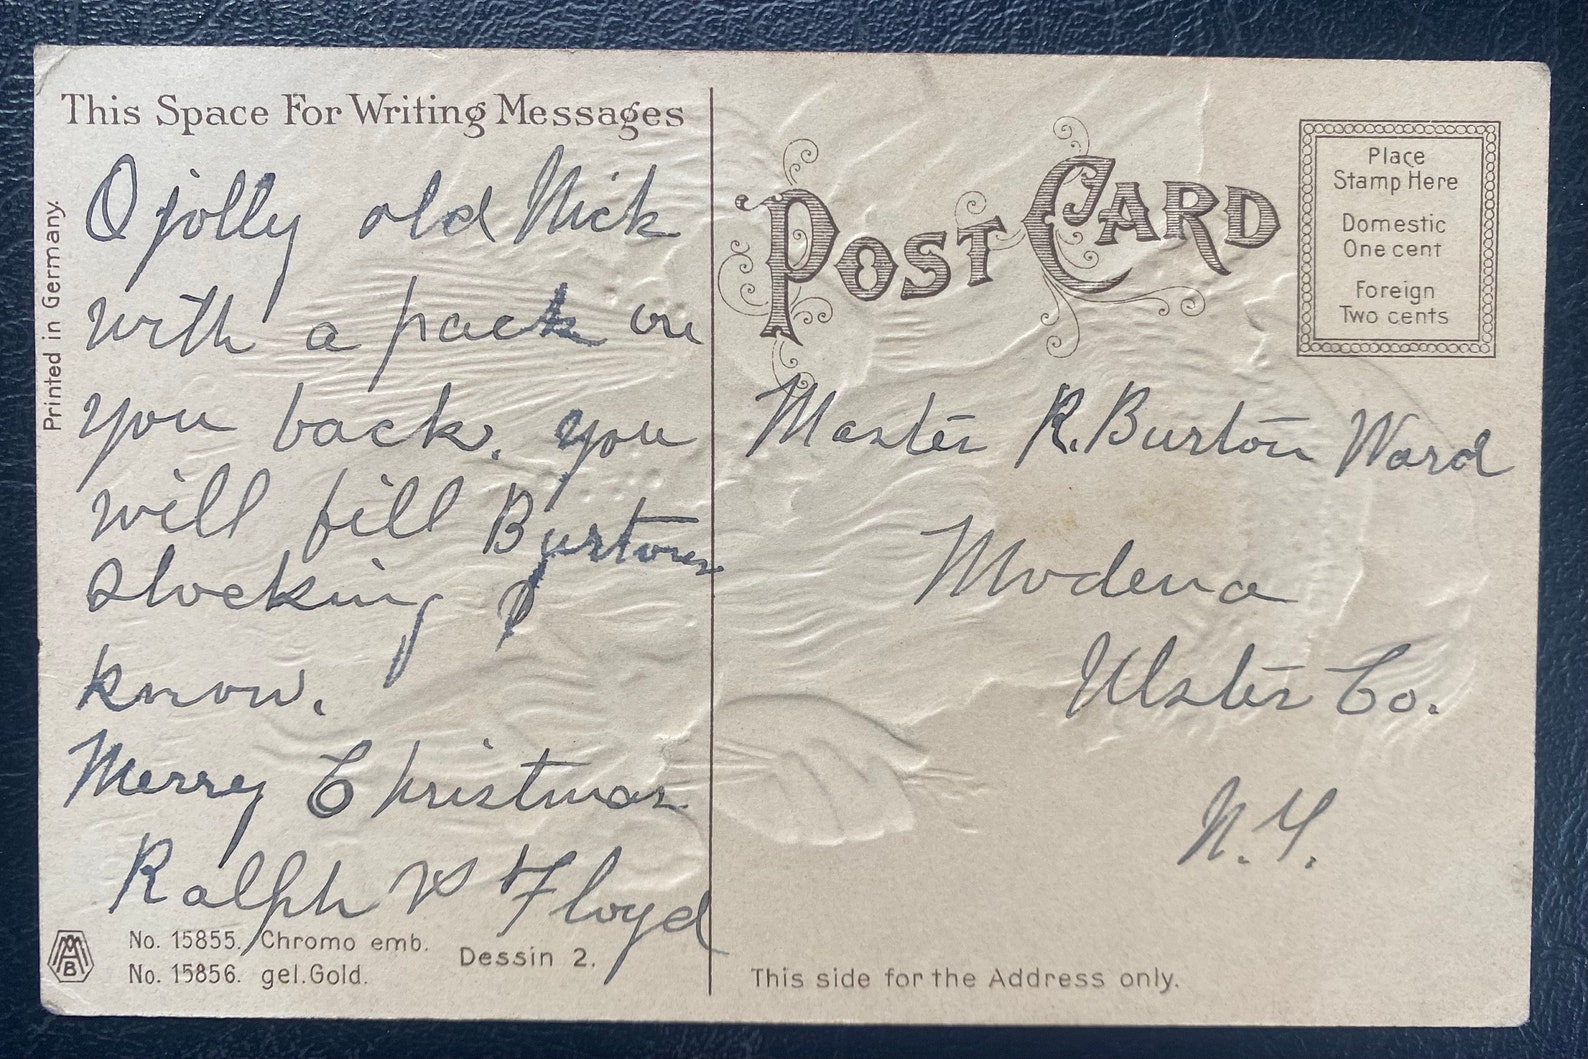 This Space For Writing Messages
O jolly old Nick
with a pack on
you back. you
will fill Burtons
stocking I
know.
Merry Christmas
Ralph & Floyd
Printed in Germany.
MAB
No. 15855. Chromo emb.
No. 15856. gel.Gold.
Dessin 2.
POST CARD
Place
Stamp Here
Domestic
One cent
Foreign
Two cents
Master R. Burton Ward
Modena
Ulster Co.
N.Y.
This side for the Address only.